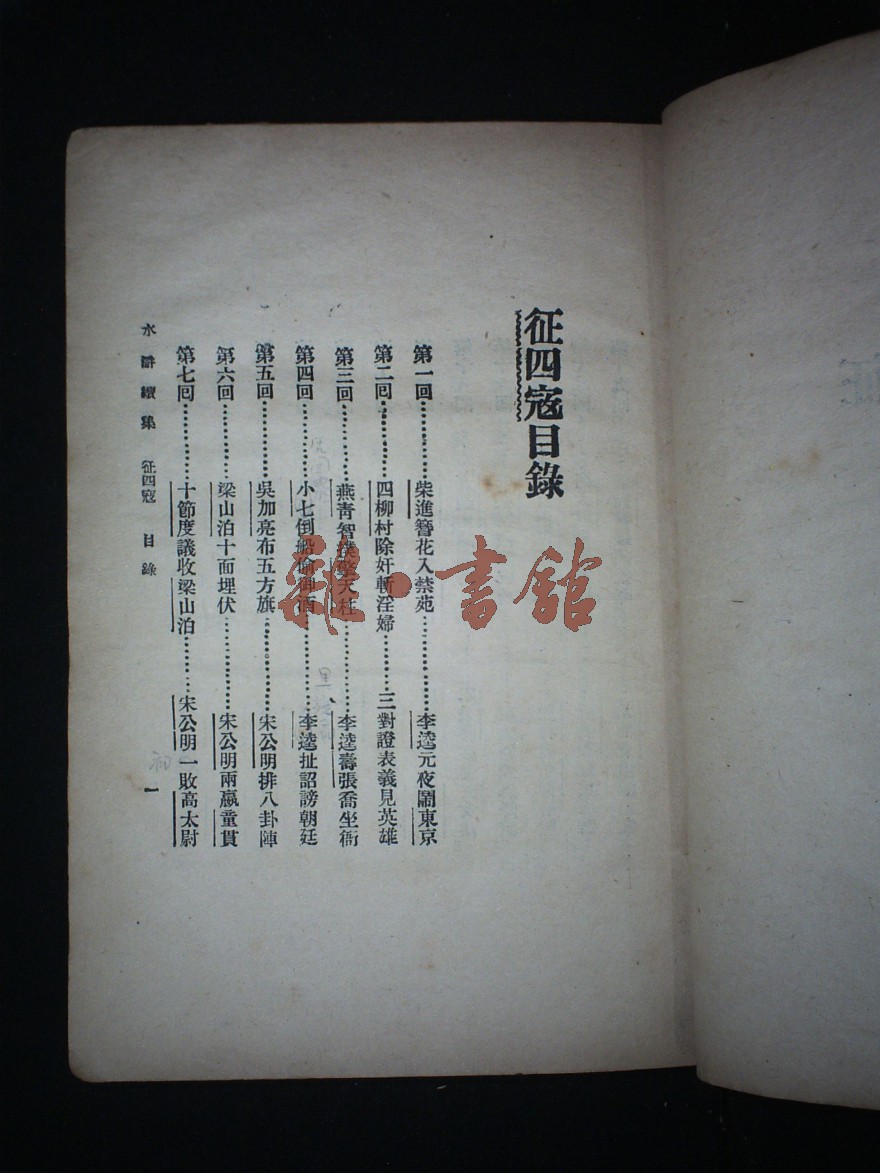 征四寇目錄
第一回…………柴進簪花入禁苑………李逵元夜鬧東京
第二回…………四柳村除奸斬淫婦………三對證表義見英雄
第三回…………燕青智撲擎天柱………李逵壽張喬坐衙
第四回…………小七倒船偷御酒………李逵扯詔謗朝廷
第五回…………吳加亮布五方旗………宋公明排八卦陣
第六回…………梁山泊十面埋伏………宋公明兩嬴童貫
第七回…………十節度議收梁山泊………宋公明一敗高太尉
水滸續集 征四寇 目錄 一
書館